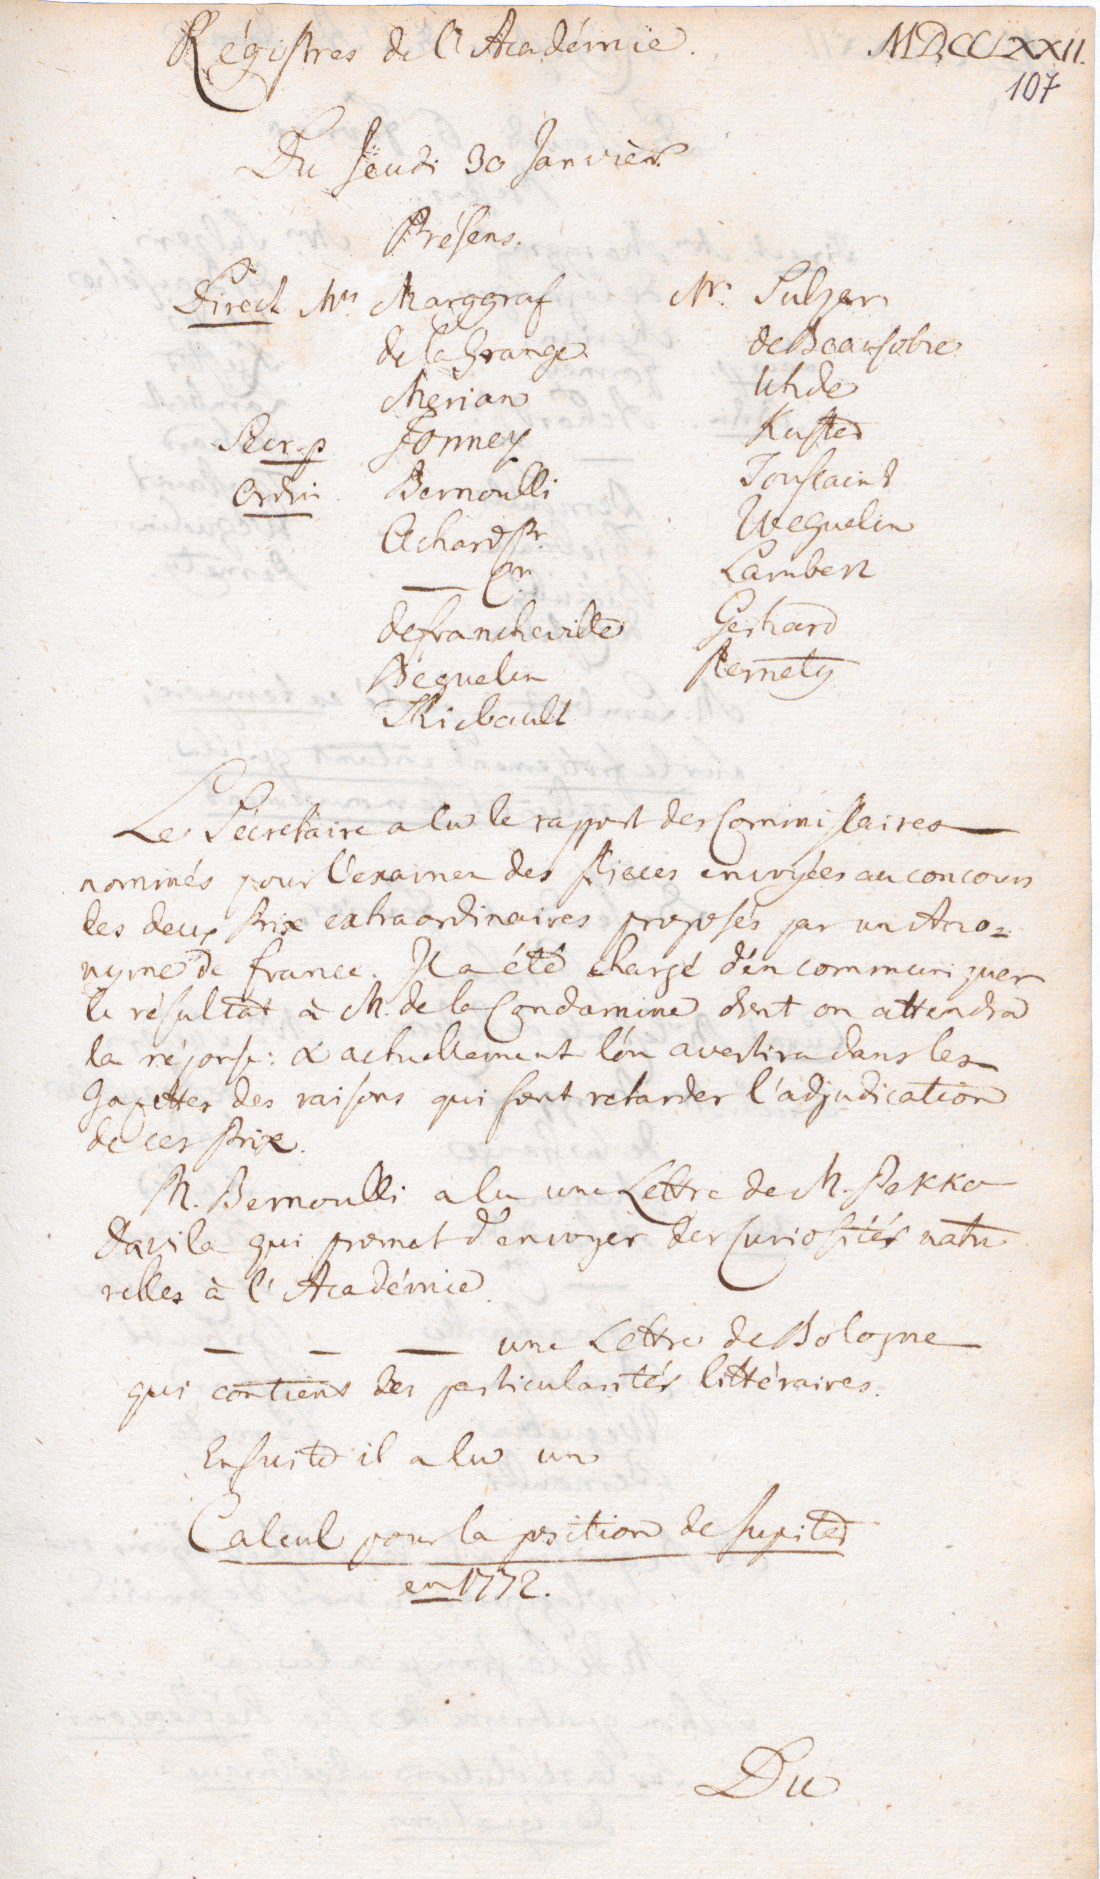 Régistres de l'Académie.
MDCCLXXII.
107
Du Jeudi 30 Janvier.
Présens.
Direct. Mrs. Marggraf
de la Grange
Merian
Secr. p. Formey
Ordin. Bernoulli
Achard Pr.
— On
de Francheville
Beguelin
Thiebault
Mr. Sulzer
de Beausobre
Uhde
Kuster
Toussaint
Weguelin
Lambert
Gerhard
Pernety
Le Sécretaire a lu le rapport des Commissaires
nommés pour l'examen des Pieces envoyées au concours
des deux Prix extraordinaires proposés par un Ano=
nyme de France. Il a été chargé d'en communiquer
le résultat à M. de la Condamine dont on attendra
la réponse: & actuellement l'on avertira dans les
Gazettes des raisons qui font retarder l'adjudication
de ces Prix.
M. Bernoulli a lu une Lettre de M. Pekko
Davila qui promet d'envoyer des curiosités natu
relles à l'Académie.
— — — une Lettre de Bologne
qui contient des particularités littéraires.
Ensuite il a lu un
Calcul pour la position de Jupiter
en 1772.
Du